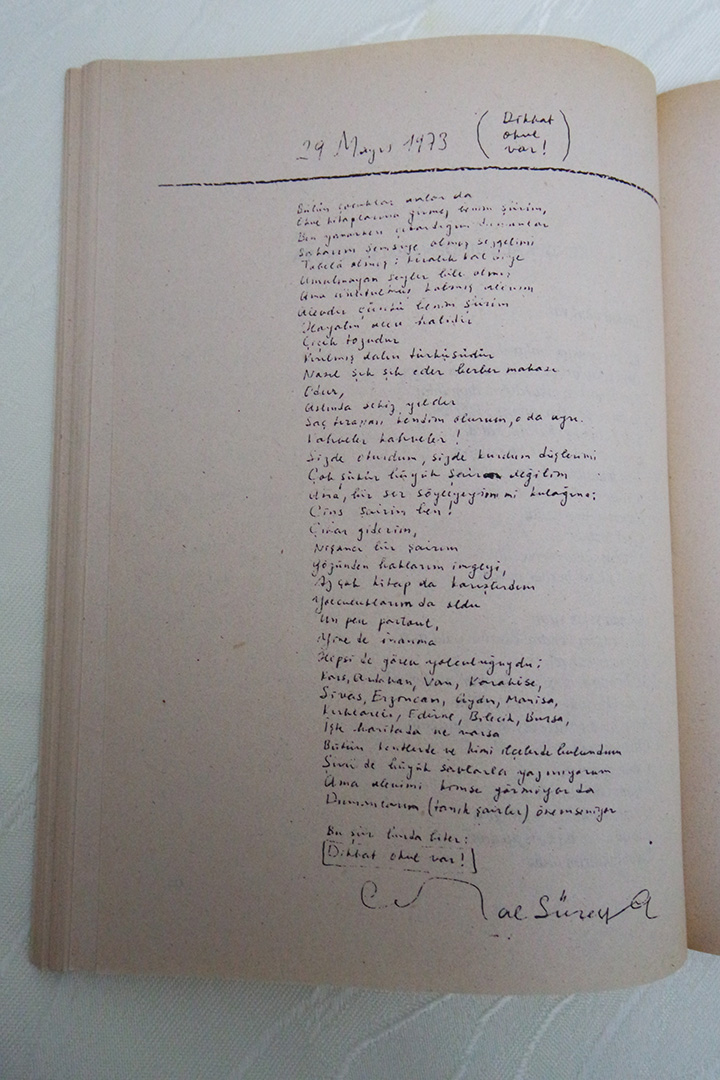 29 Mayıs 1973
(Dikkat
okul
var!)
Bütün çocuklar anlar da
Okul kitaplarına girmez benim şiirim,
Ben yanarken çıkardığım dumanlar
Sanırım şemsiye olmuş sevgilimi
Tabelâ olmuş: kiralık kat
Umulmayan şeyler bile olmuş
Ama unutulmuş kalmış alevim
Alevdir çünkü benim şiirim
Olayın acı halidir
Çiçik tozudur
Kırılmış dalın türküsüdür
Nasıl şık şık eder berber makası
Odur,
Aslında sekiz yıldır
Saç tıraşımı kendim olurum, o da ayrı.
Kahveler kahveler!
Sizde oturdum, sizde kurdum düşlerimi
Çok şükür büyük şair değilim
Ama, bir şey söyleyeyim mi kulağına:
Cins şairim ben!
Çıkar giderim,
Nişancı bir şairim
Gözünden haklarım imgeyi,
Az çok kitap da karıştırdım
Yolculuklarım da oldu
Un peu partout,
Yine de inanma
Hepsi de görev yolculuğuydu;
Kars, Ardahan, Van, Karaköse,
Sivas, Erzincan, Aydın, Manisa,
Kırklareli, Edirne, Bilecik, Bursa,
İşte haritada ne varsa
Bütün kentlerde ve kimi ilçelerde bulundum
Şiiri de büyük savlarla yazmıyorum
Ama alevimi kimse görmüyor da
Dumanlarım (tanık şairler) önemseniyor
Bu şiir burda biter:
[Dikkat okul var!]
Cemal Süreya